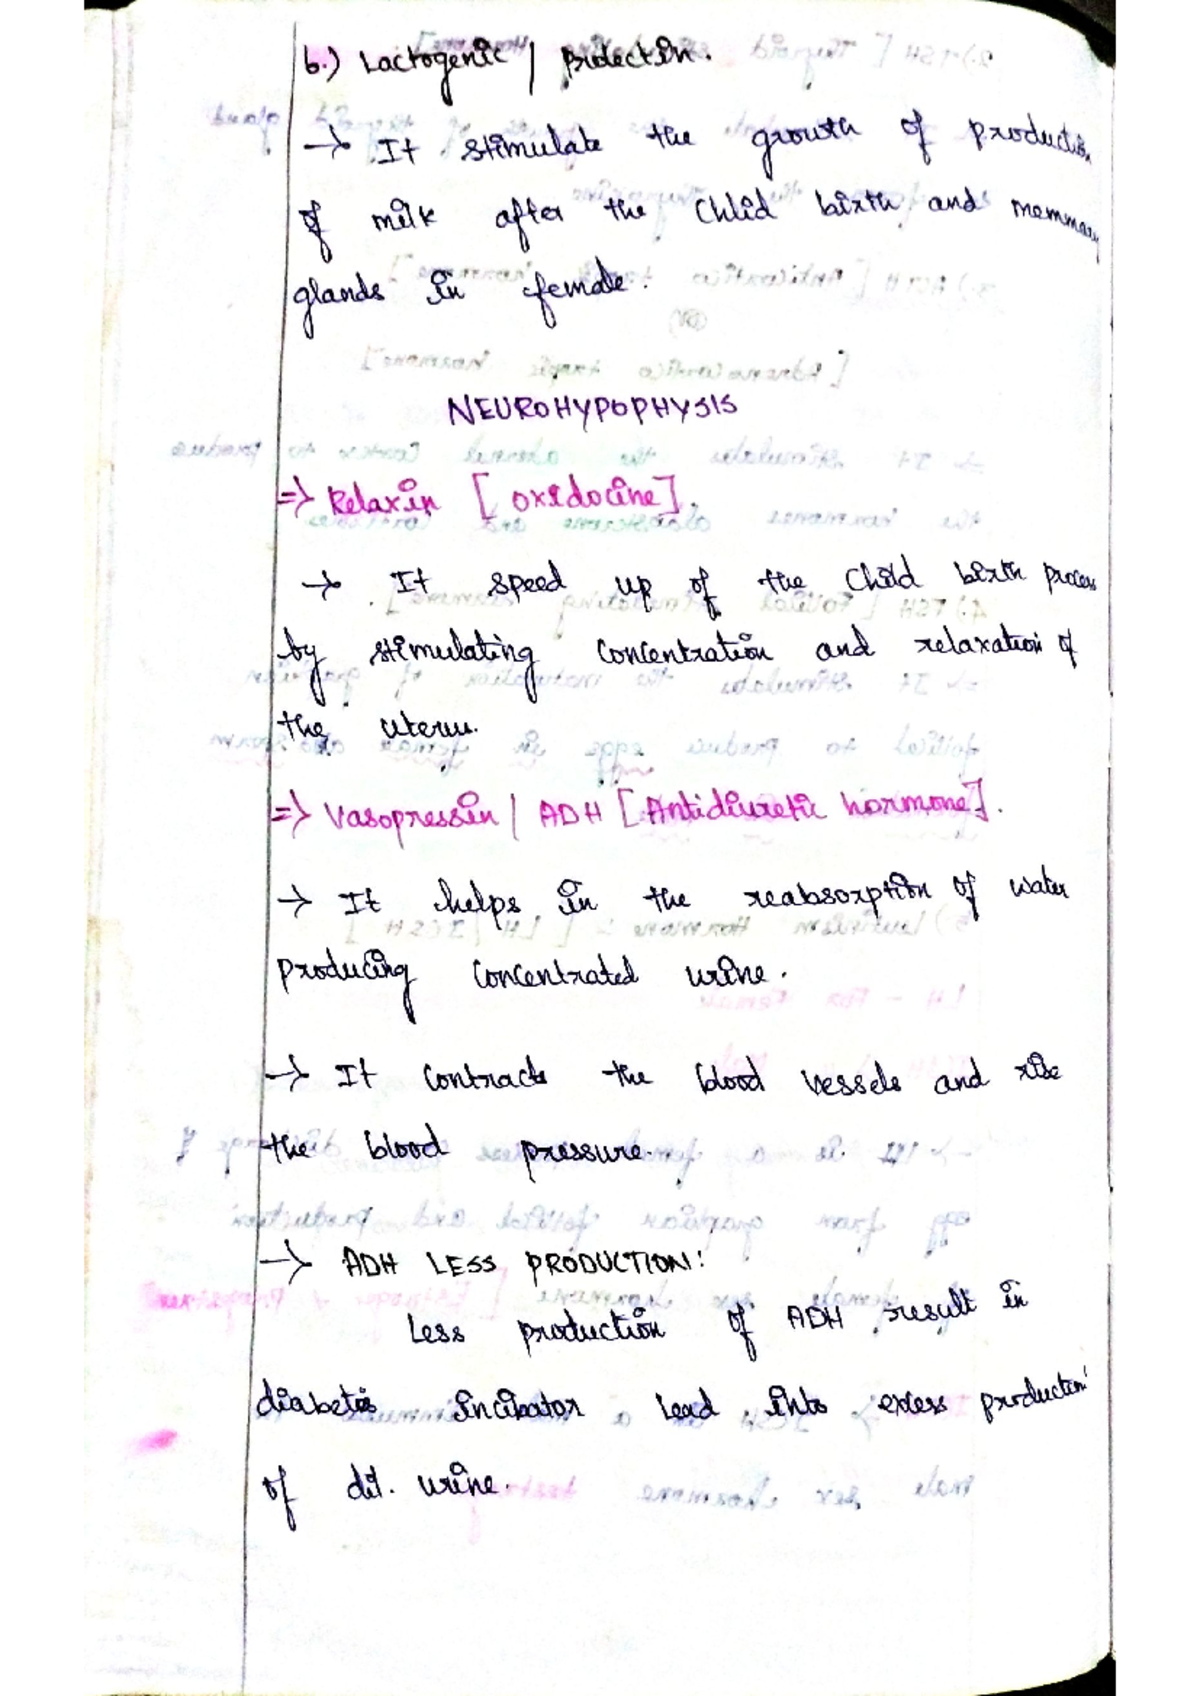 6.) Lactogenic / Prolectin.
→ It stimulate the growth of production
of milk after the Chlid birth and memmary
glands in female.
NEUROHYPOPHYSIS
=> Relaxin [oxidocine].
→ It speed up of the Child birth process
by stimulating concentration and relaxation of
the uterus.
=> Vasopressin / ADH [Antidiuretic hormone].
→ It helps in the reabsorption of water
producing concentrated urine.
→ It contracts the blood vessels and rise
the blood pressure.
→ ADH LESS PRODUCTION:
Less production of ADH result in
diabetis incibator lead into excess production
of dil. urine.